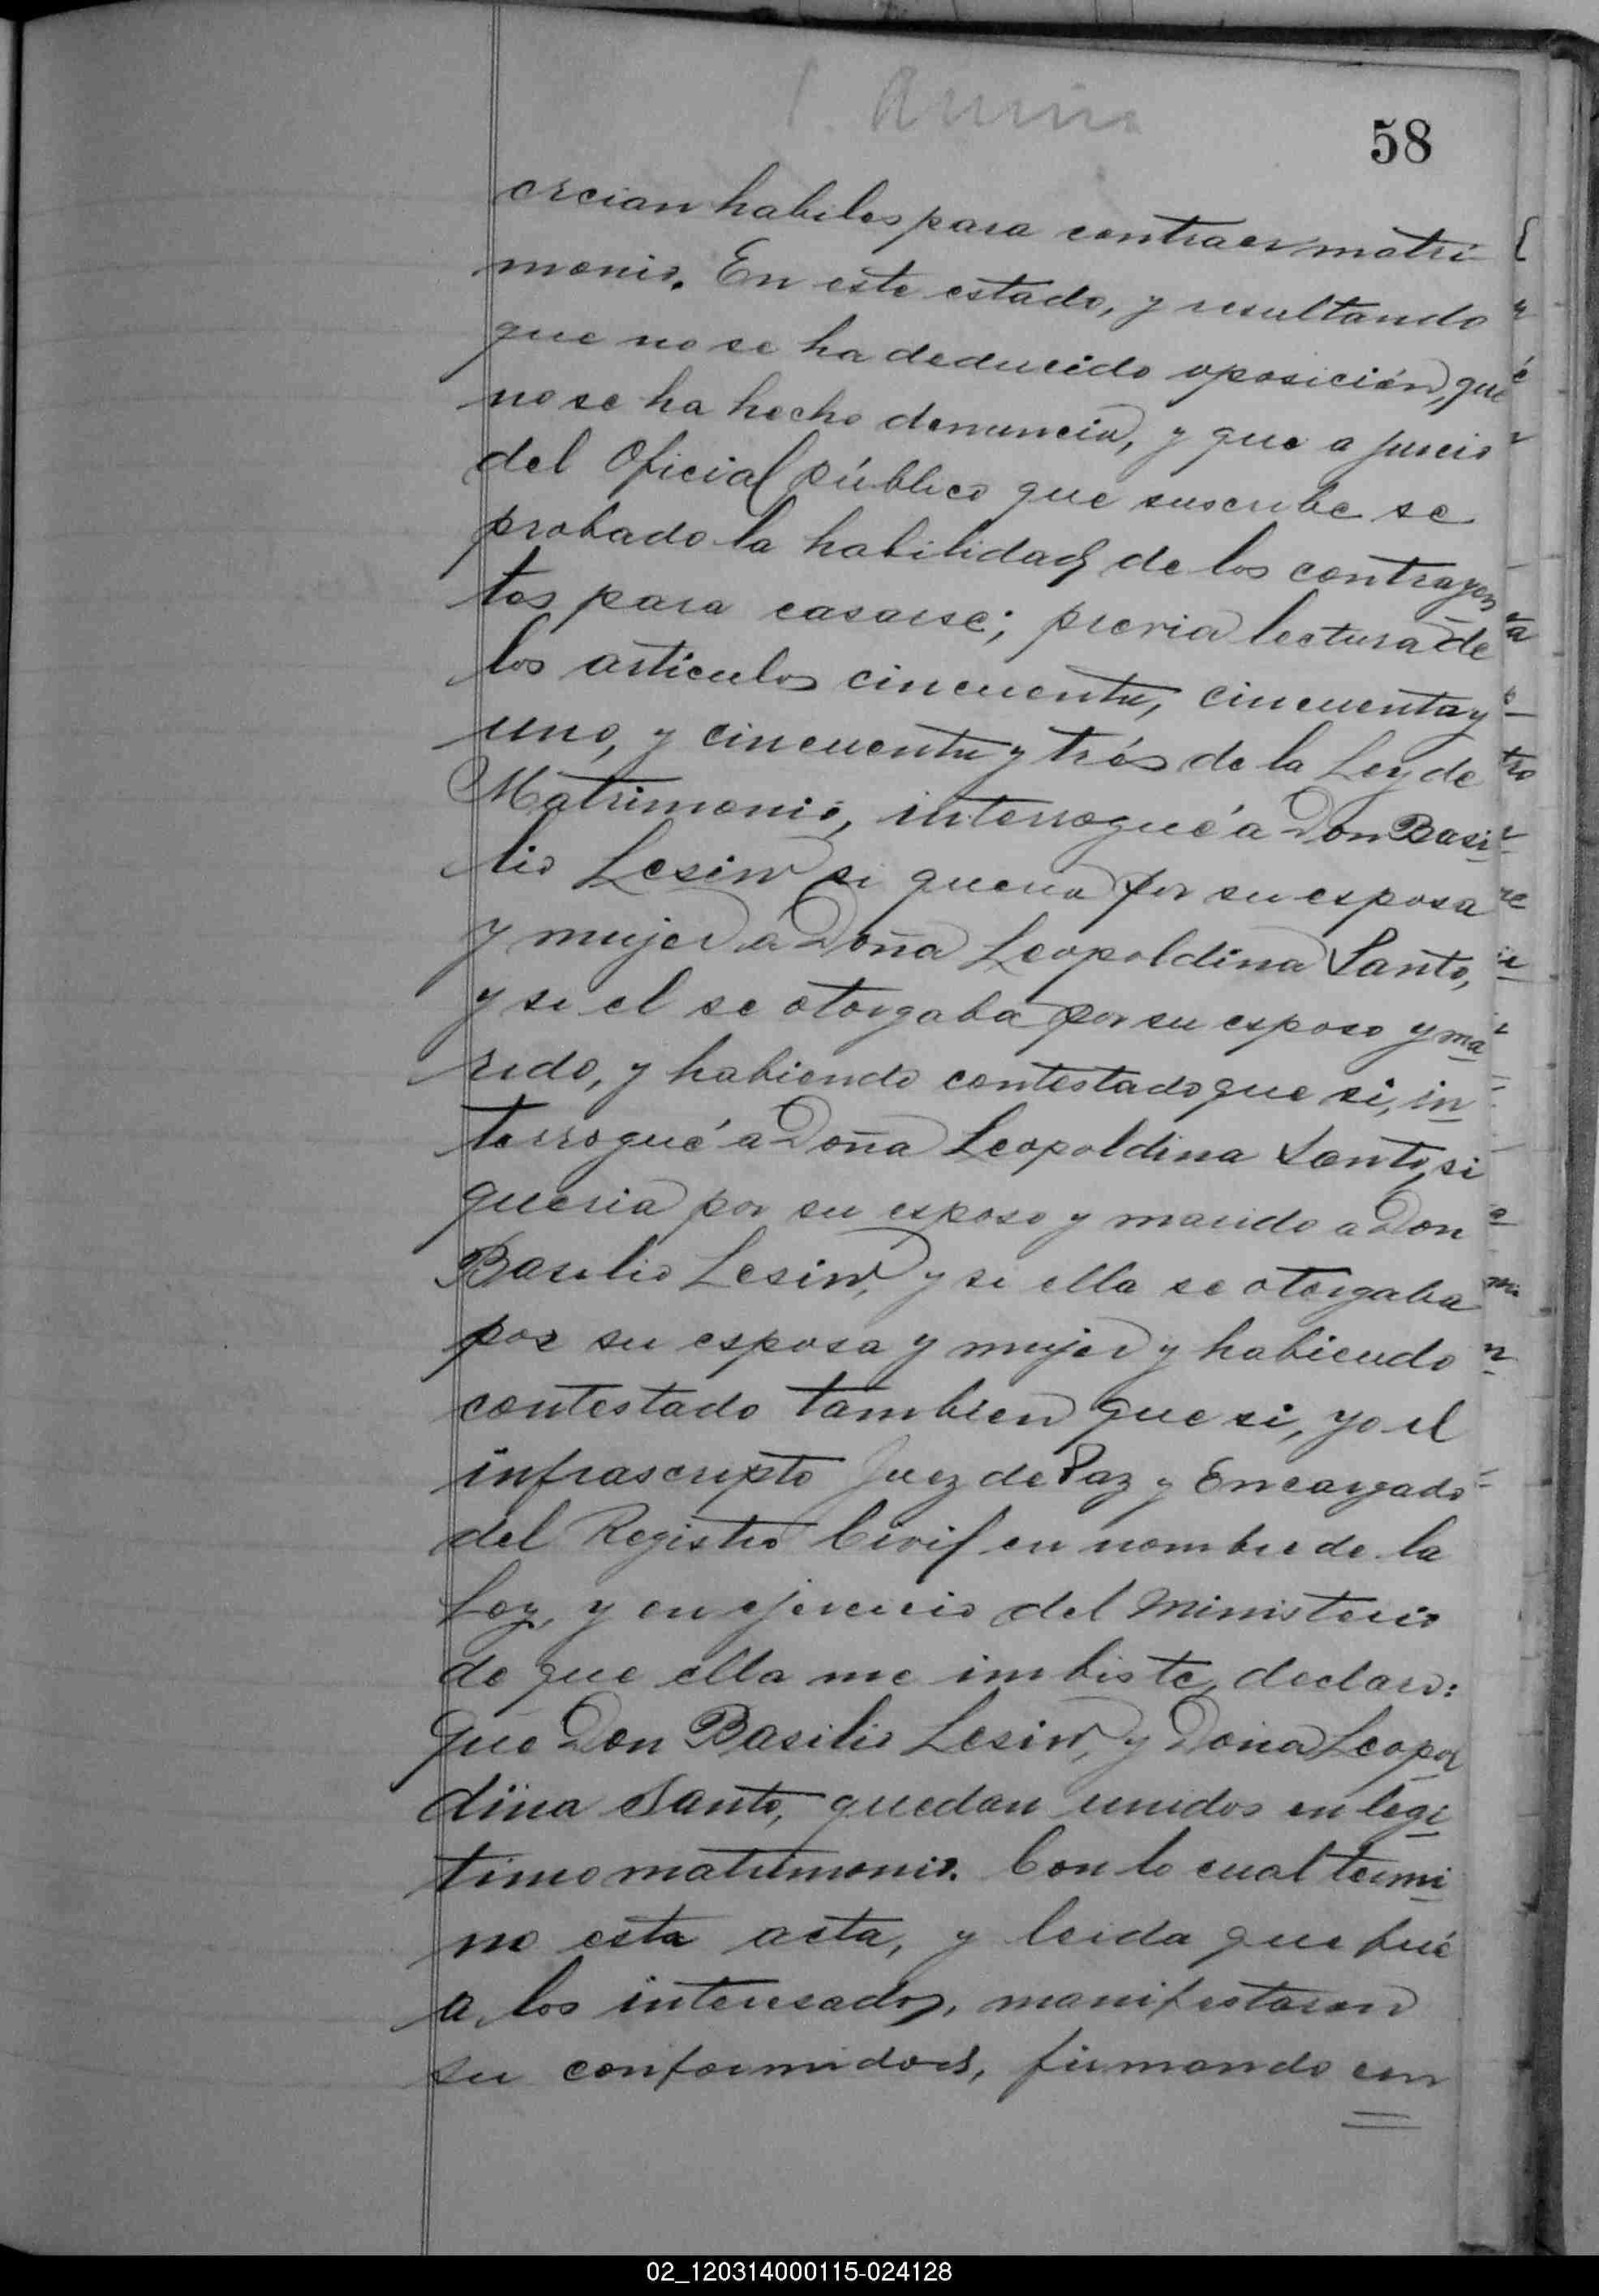 58
crcian habiles para contraer matri
monio. En este estado, y resultando
que no se ha deducido oposición, que
no se ha hecho denuncia, y que a juicio
del Oficial público que suscribe se
probado la habilidad de los contrayen
tes para casarse; previa lectura de
los articulos cincuenta, cincuenta y
uno, y cincuenta y trés de la Ley de
Matrimonio, interrogué a Don Basi
lio Lesiw si queria por su esposa
y mujer a Doña Leopoldina Santo,
y si el se otorgaba por su esposo y ma
rido, y habiendo contestado que si, in
terrogué a Doña Leopoldina Santo, si
queria por su esposo y marido a Don
Basilio Lesiw, y si ella se otorgaba
por su esposa y mujer y habiendo
contestado tambien que si, yo el
infrascripto Juez de Paz y Encargado
del Registro Civil en nombre de la
Ley, y en ejercicio del Ministerio
de que ella me imbiste, declaro:
que Don Basilio Lesiw, y Doña Leopol
dina Santo, quedan unidos en legi
timo matrimonio. Con lo cual termi
no esta acta, y leida que fué
a los interesados, manifestaron
su conformidad, firmando con
02_120314000115-024128